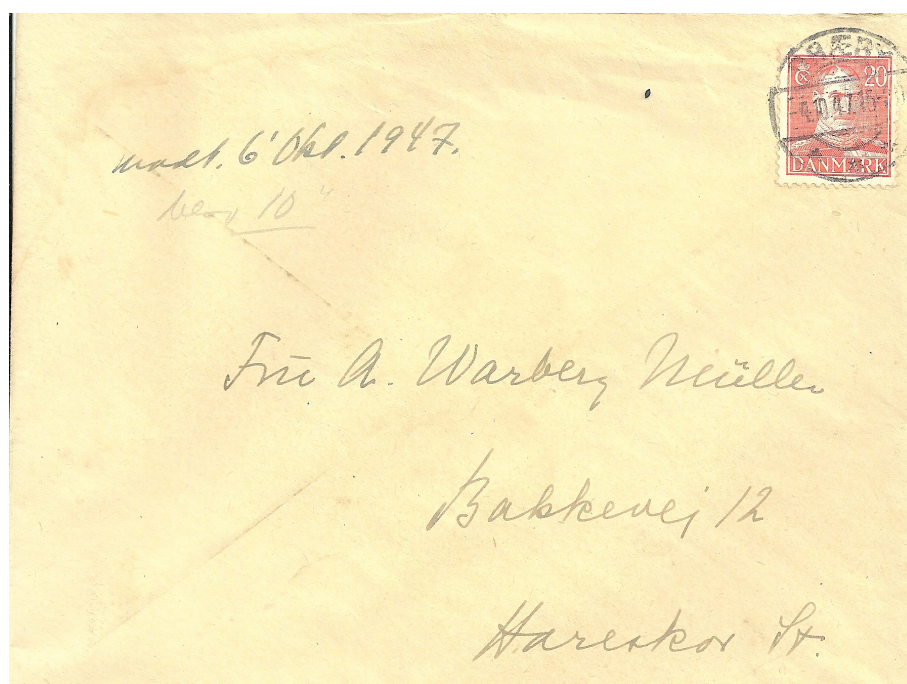 20
4.10.47.15
DANMARK
modt. 6' Okt. 1947.
10"
Fru A. Warberg Müller
Bakkevej 12
Hareskov St.